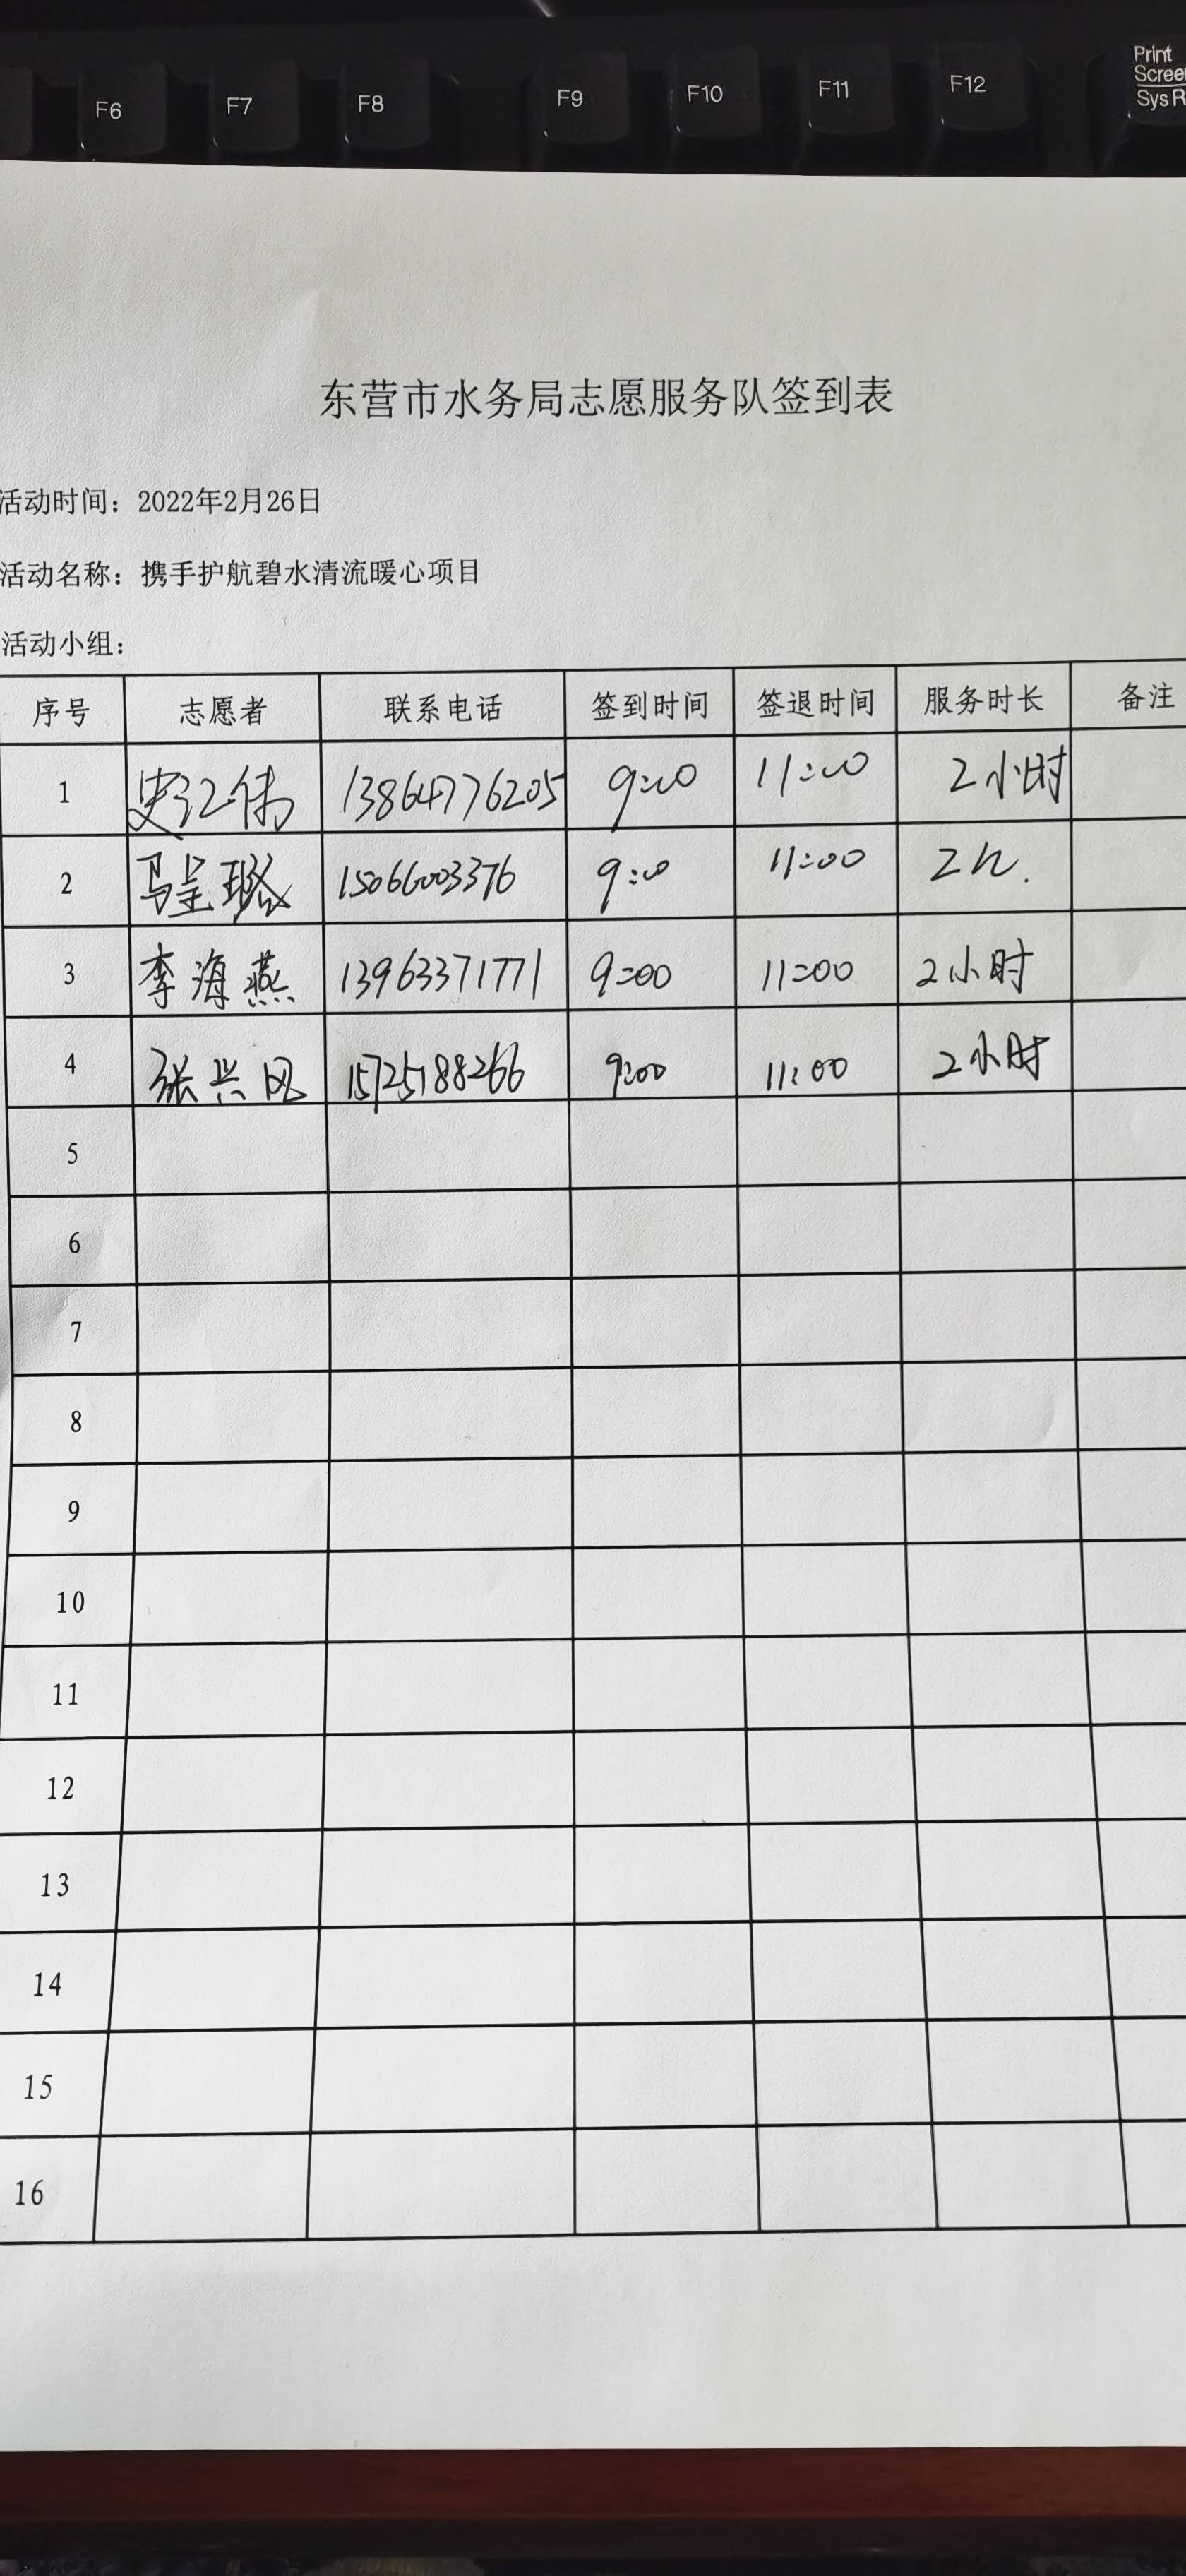 F6 F7 F8 F9 F10 F11 F12 Print
Scree
Sys R
东营市水务局志愿服务队签到表
活动时间：2022年2月26日
活动名称：携手护航碧水清流暖心项目
活动小组：
序号 志愿者 联系电话 签到时间 签退时间 服务时长 备注
1 史江伟 13864776205 9:00 11:00 2小时
2 马呈璐 15066003376 9:00 11:00 2h.
3 李海燕 13963371771 9:00 11:00 2小时
4 张兴 15725188266 9:00 11:00 2小时
5
6
7
8
9
10
11
12
13
14
15
16